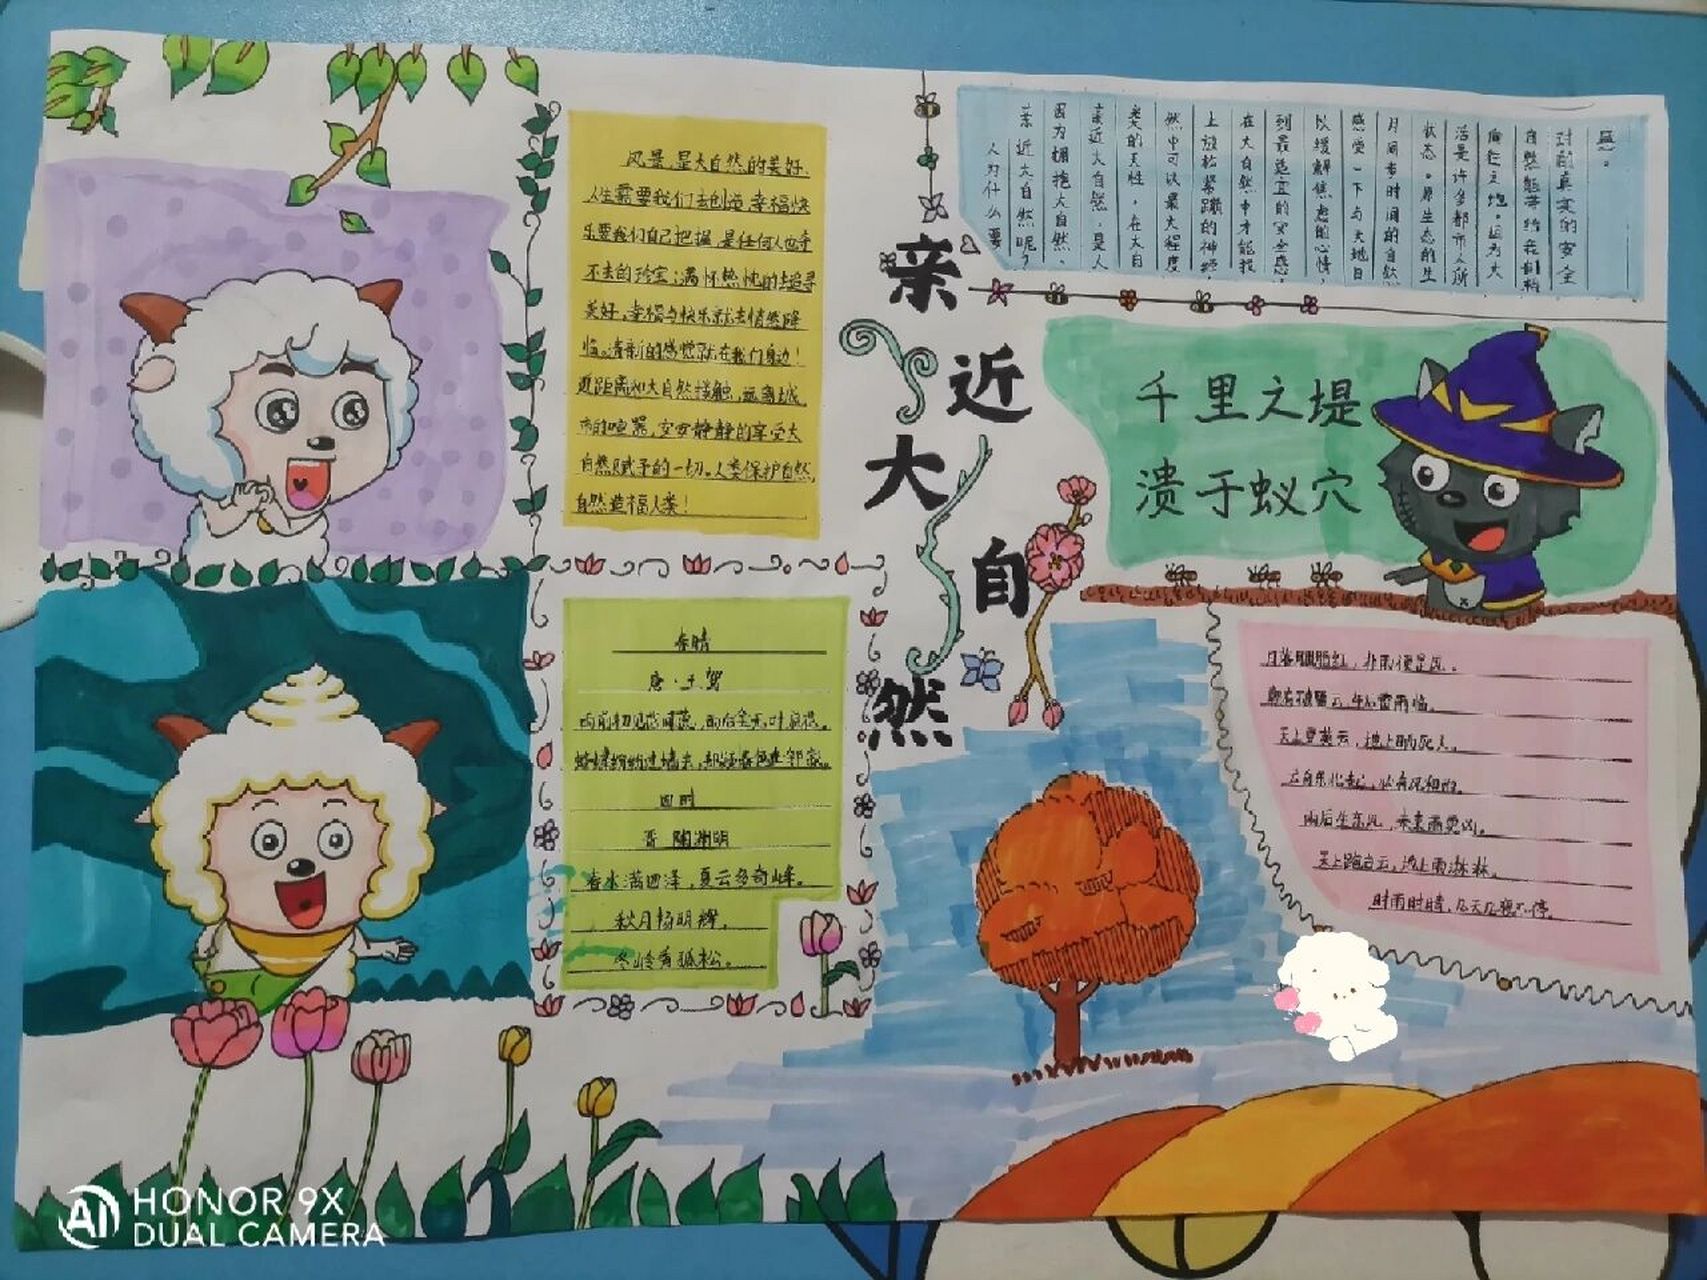 亲近大自然
风景,是大自然的美好,
人生需要我们去创造,幸福快
乐要我们自己把握,是任何人也夺
不去的珍宝;满怀热忱的去追寻
美好,幸福与快乐就会悄然降
临。清新的感觉就在我们身边!
近距离和大自然接触,远离城
市的喧嚣,安安静静的享受大
自然赋予的一切。人类保护自然,
自然造福人类!
人为什么要
亲近大自然呢?
因为拥抱大自然、
亲近大自然,是人
类的天性,在大自
然中可以最大程度
上放松紧蹦的神经,
在大自然中才能找
到最适宜的安全感,
以缓解焦虑的心情,
感受一下与大地日
月同步时间的自然
状态。原生态的生
活是许多都市人所
向往之地。因为大
自然能带给我们精
对的真实的安全
感。
千里之堤
溃于蚁穴
春晴
唐·王驾
雨前初见花间蕊,雨后全无叶底花。
蛱蝶纷纷过墙去,却疑春色在邻家。
四时
晋 陶渊明
春水满四泽,夏云多奇峰。
秋月扬明辉,
冬岭秀孤松。
月落胭脂红,非雨便是风。
朝有破絮云,午后雷雨临。
天上豆荚云,地上晒死人。
雨后生东风,未来雨更凶。
天上跑白云,地上雨淋淋。
时雨时晴,几天几夜不停。
HONOR 9X
DUAL CAMERA